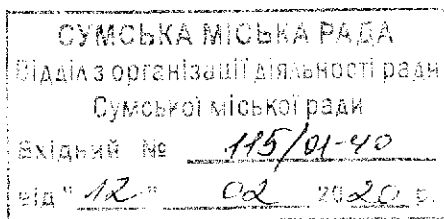 СУМСЬКА МІСЬКА РАДА
Відділ з організації діяльності ради
Сумської міської ради
Вхідний № 115/01-40
від "12" 02 2020 р.